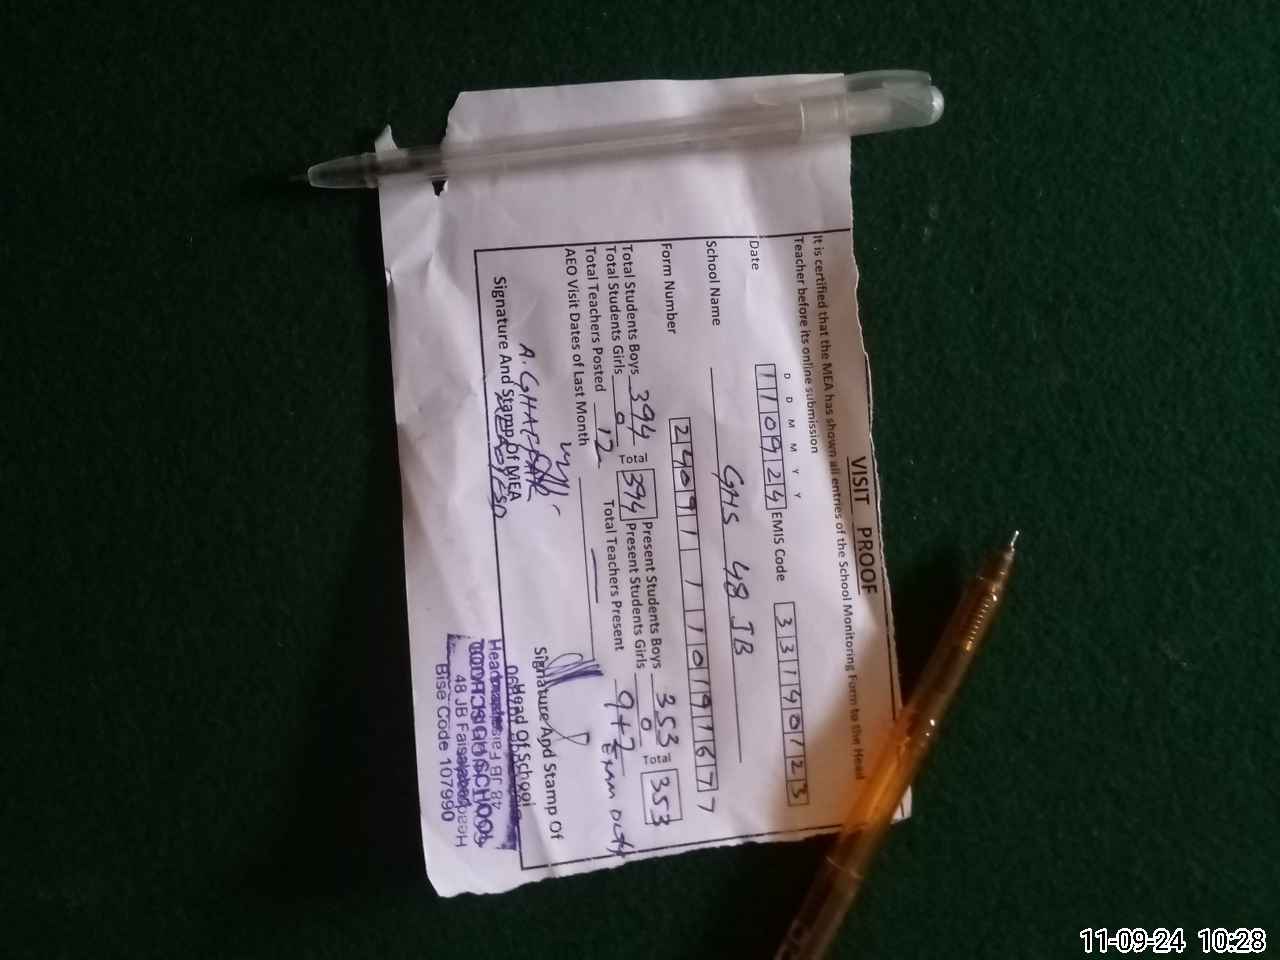 VISIT PROOF
It is certified that the MEA has shown all entries of the School Monitoring Form to the Head
Teacher before its online submission
D D M M Y Y
Date 110924 EMIS Code 33140123
School Name GHS 48 JB
Form Number
Total Students Boys 394 Total 394 Present Students Boys 353 Total 353
Total Students Girls 0 Present Students Girls 0
Total Teachers Posted 12 Total Teachers Present 9+2 Exam Duty
AEO Visit Dates of Last Month
A. GHAFFAR
Signature And Stamp Of MEA
Signature And Stamp Of
Head Of School
48 JB Faisalabad
Bise Code 107990
11-09-24 10:28